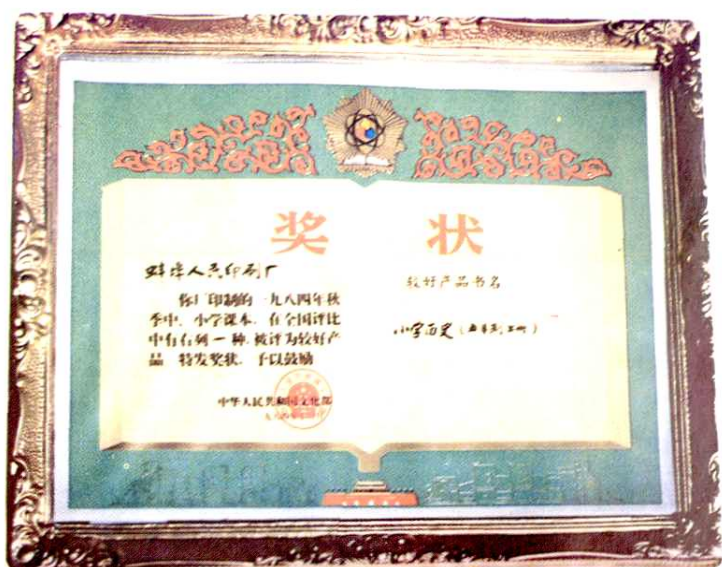 奖状
蚌埠人民印刷厂
你厂印制的一九八四年秋
季中、小学课本，在全国评比
中有右列一种，被评为较好产
品，特发奖状，予以鼓励
中华人民共和国文化部
较好产品书名
小学历史（上册）